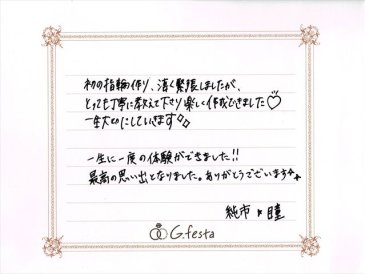 初の指輪作り、凄く緊張しましたが、
とっても丁寧に教えて下さり楽しく作成できました♡
一生大切にしていきます✧
一生に一度の体験ができました!!
最高の思い出となりました。ありがとうございます✧
純市 瞳
G.festa